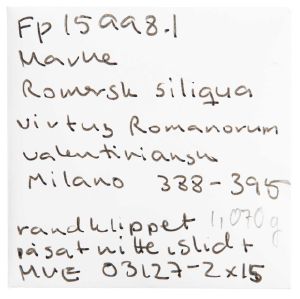 Fp 15998.1
Marke
Romersk siliqua
virtus Romanorum
valentiniansk
Milano 388-395
randklippet 1,070 g
påsat nitte islidt
MUE 03127-2x15